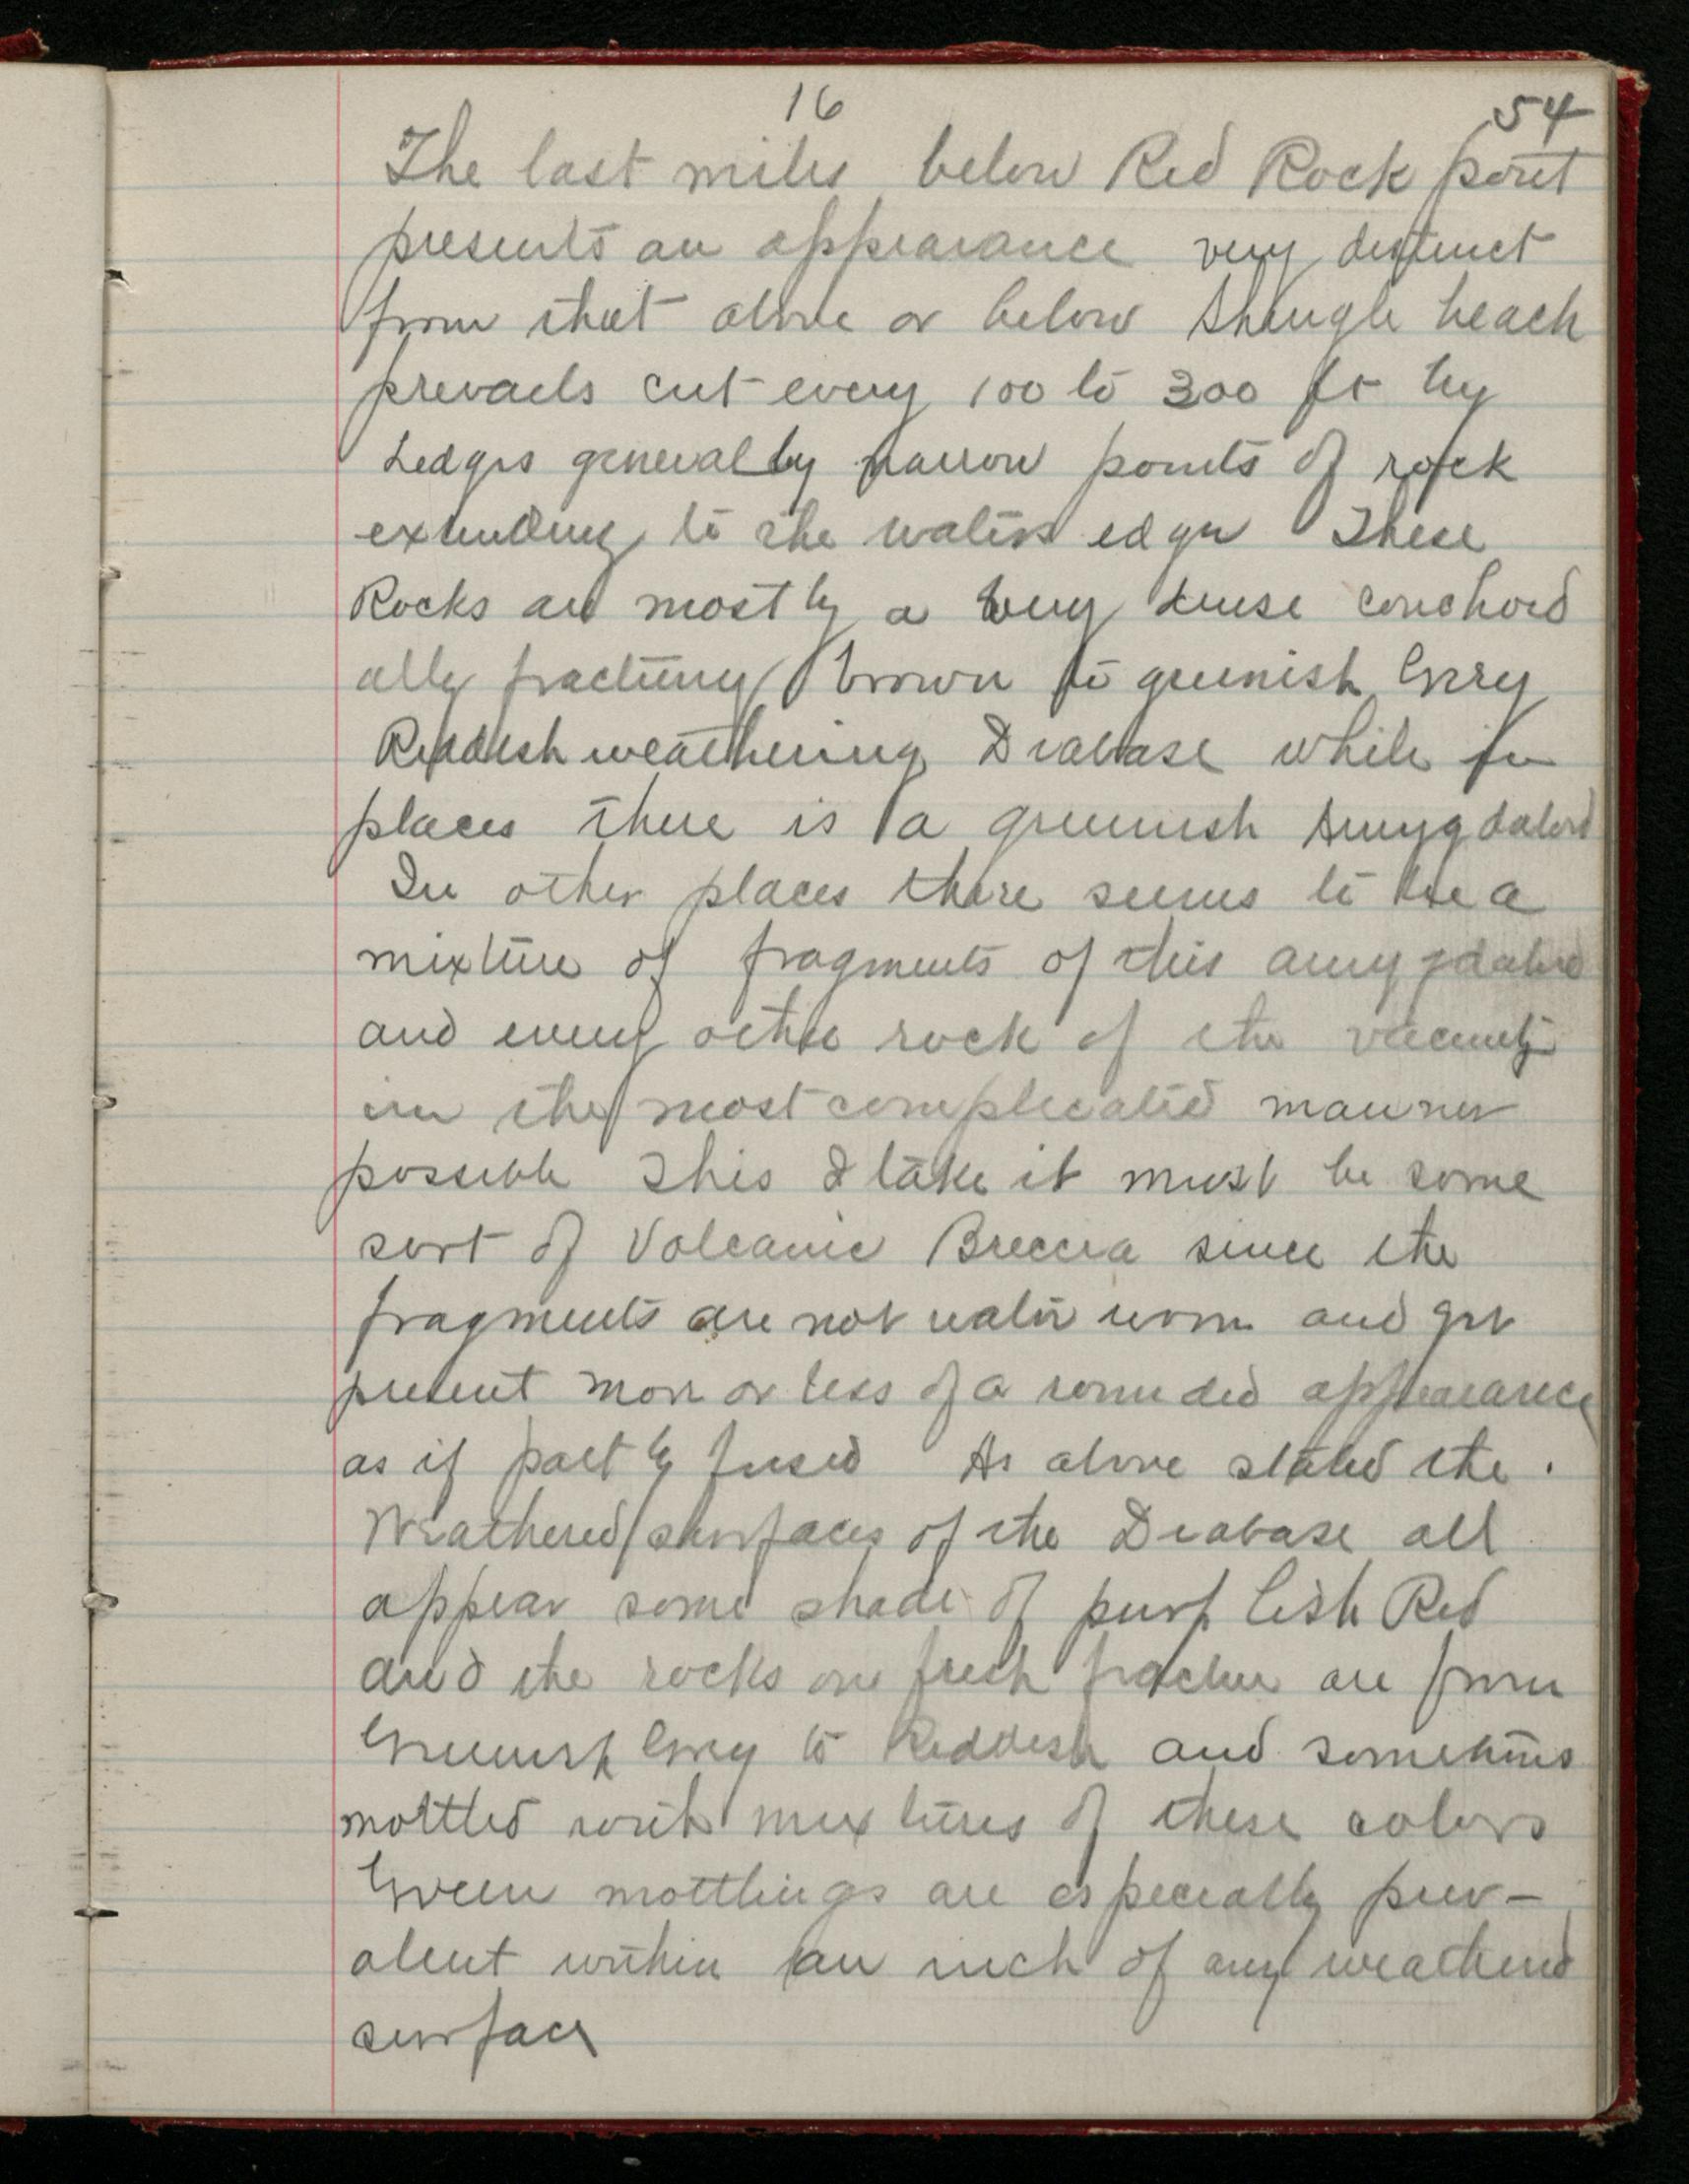 16
54
The last miles below Red Rock point
presents an appearance very distinct
from that above or below Shingle beach
prevails cut every 100 to 300 ft by
Ledges generally narrow points of rock
extending to the waters edge These
Rocks are mostly a very dense conchoid
ally fracturing brown to greenish Grey
Reddish weathering Diabase while in
places there is a greenish Amygdaloid
In other places there seems to be a
mixture of fragments of this amygdaloid
and every other rock of the vacinity
in the most complicated manner
possible This I take it must be some
sort of Volcanic Breccia since the
fragments are not water worn and yet
present more or less of a rounded appearance
as if partly fused As above stated the
Weathered surfaces of the Diabase all
appear some shade of purplish Red
and the rocks on fresh fracture are from
Greenish Grey to Reddish and sometimes
mottled with mixtures of these colors
Green mottlings are especially prev-
alent within an inch of any weathered
surface